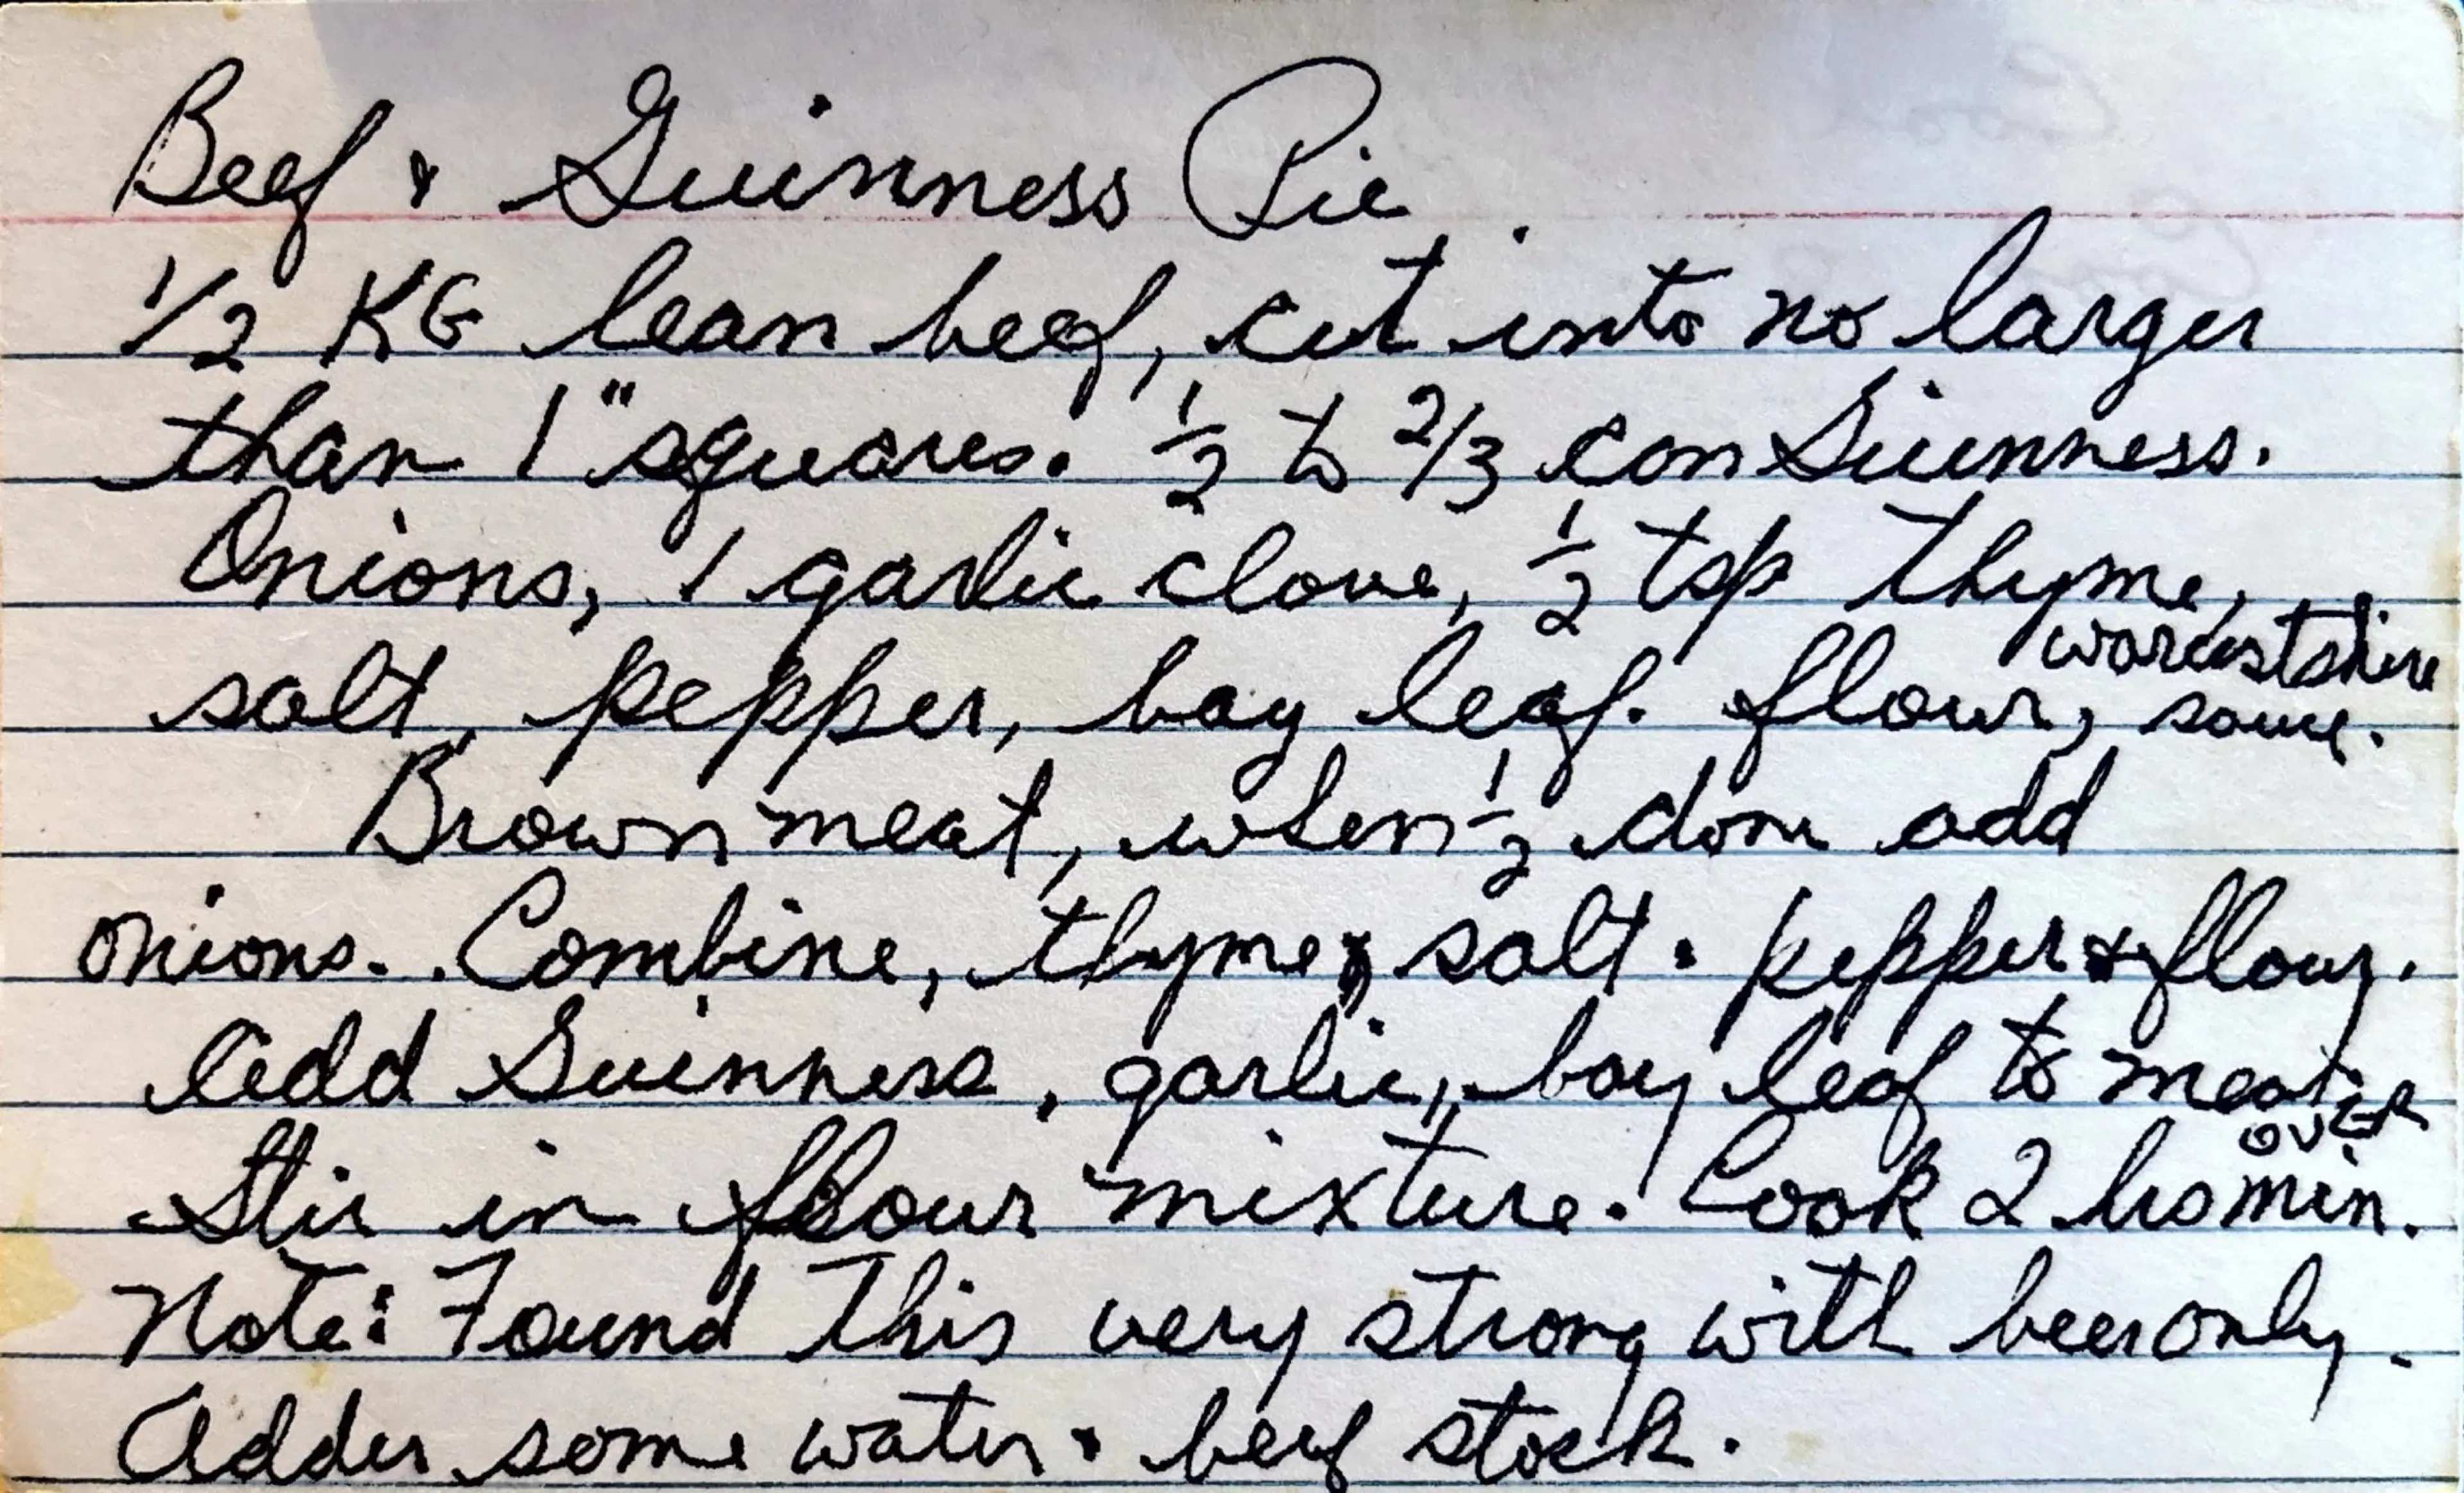 Beef & Guinness Pie
1/2 KG lean beef, cut into no larger
than 1" squares. 1/2 to 2/3 can Guinness.
Onions, 1 garlic clove, 1/2 tsp thyme,
salt, pepper, bay leaf. flour, worcestshire sauce.
Brown meat, when 1/2 done add
onions. Combine, thyme, salt & pepper & flour.
Add Guinness, garlic, bay leaf to meat.
Stir in flour mixture. Cook 2 hrs min.
OVER
Note: Found this very strong with beer only.
Added some water & beef stock.